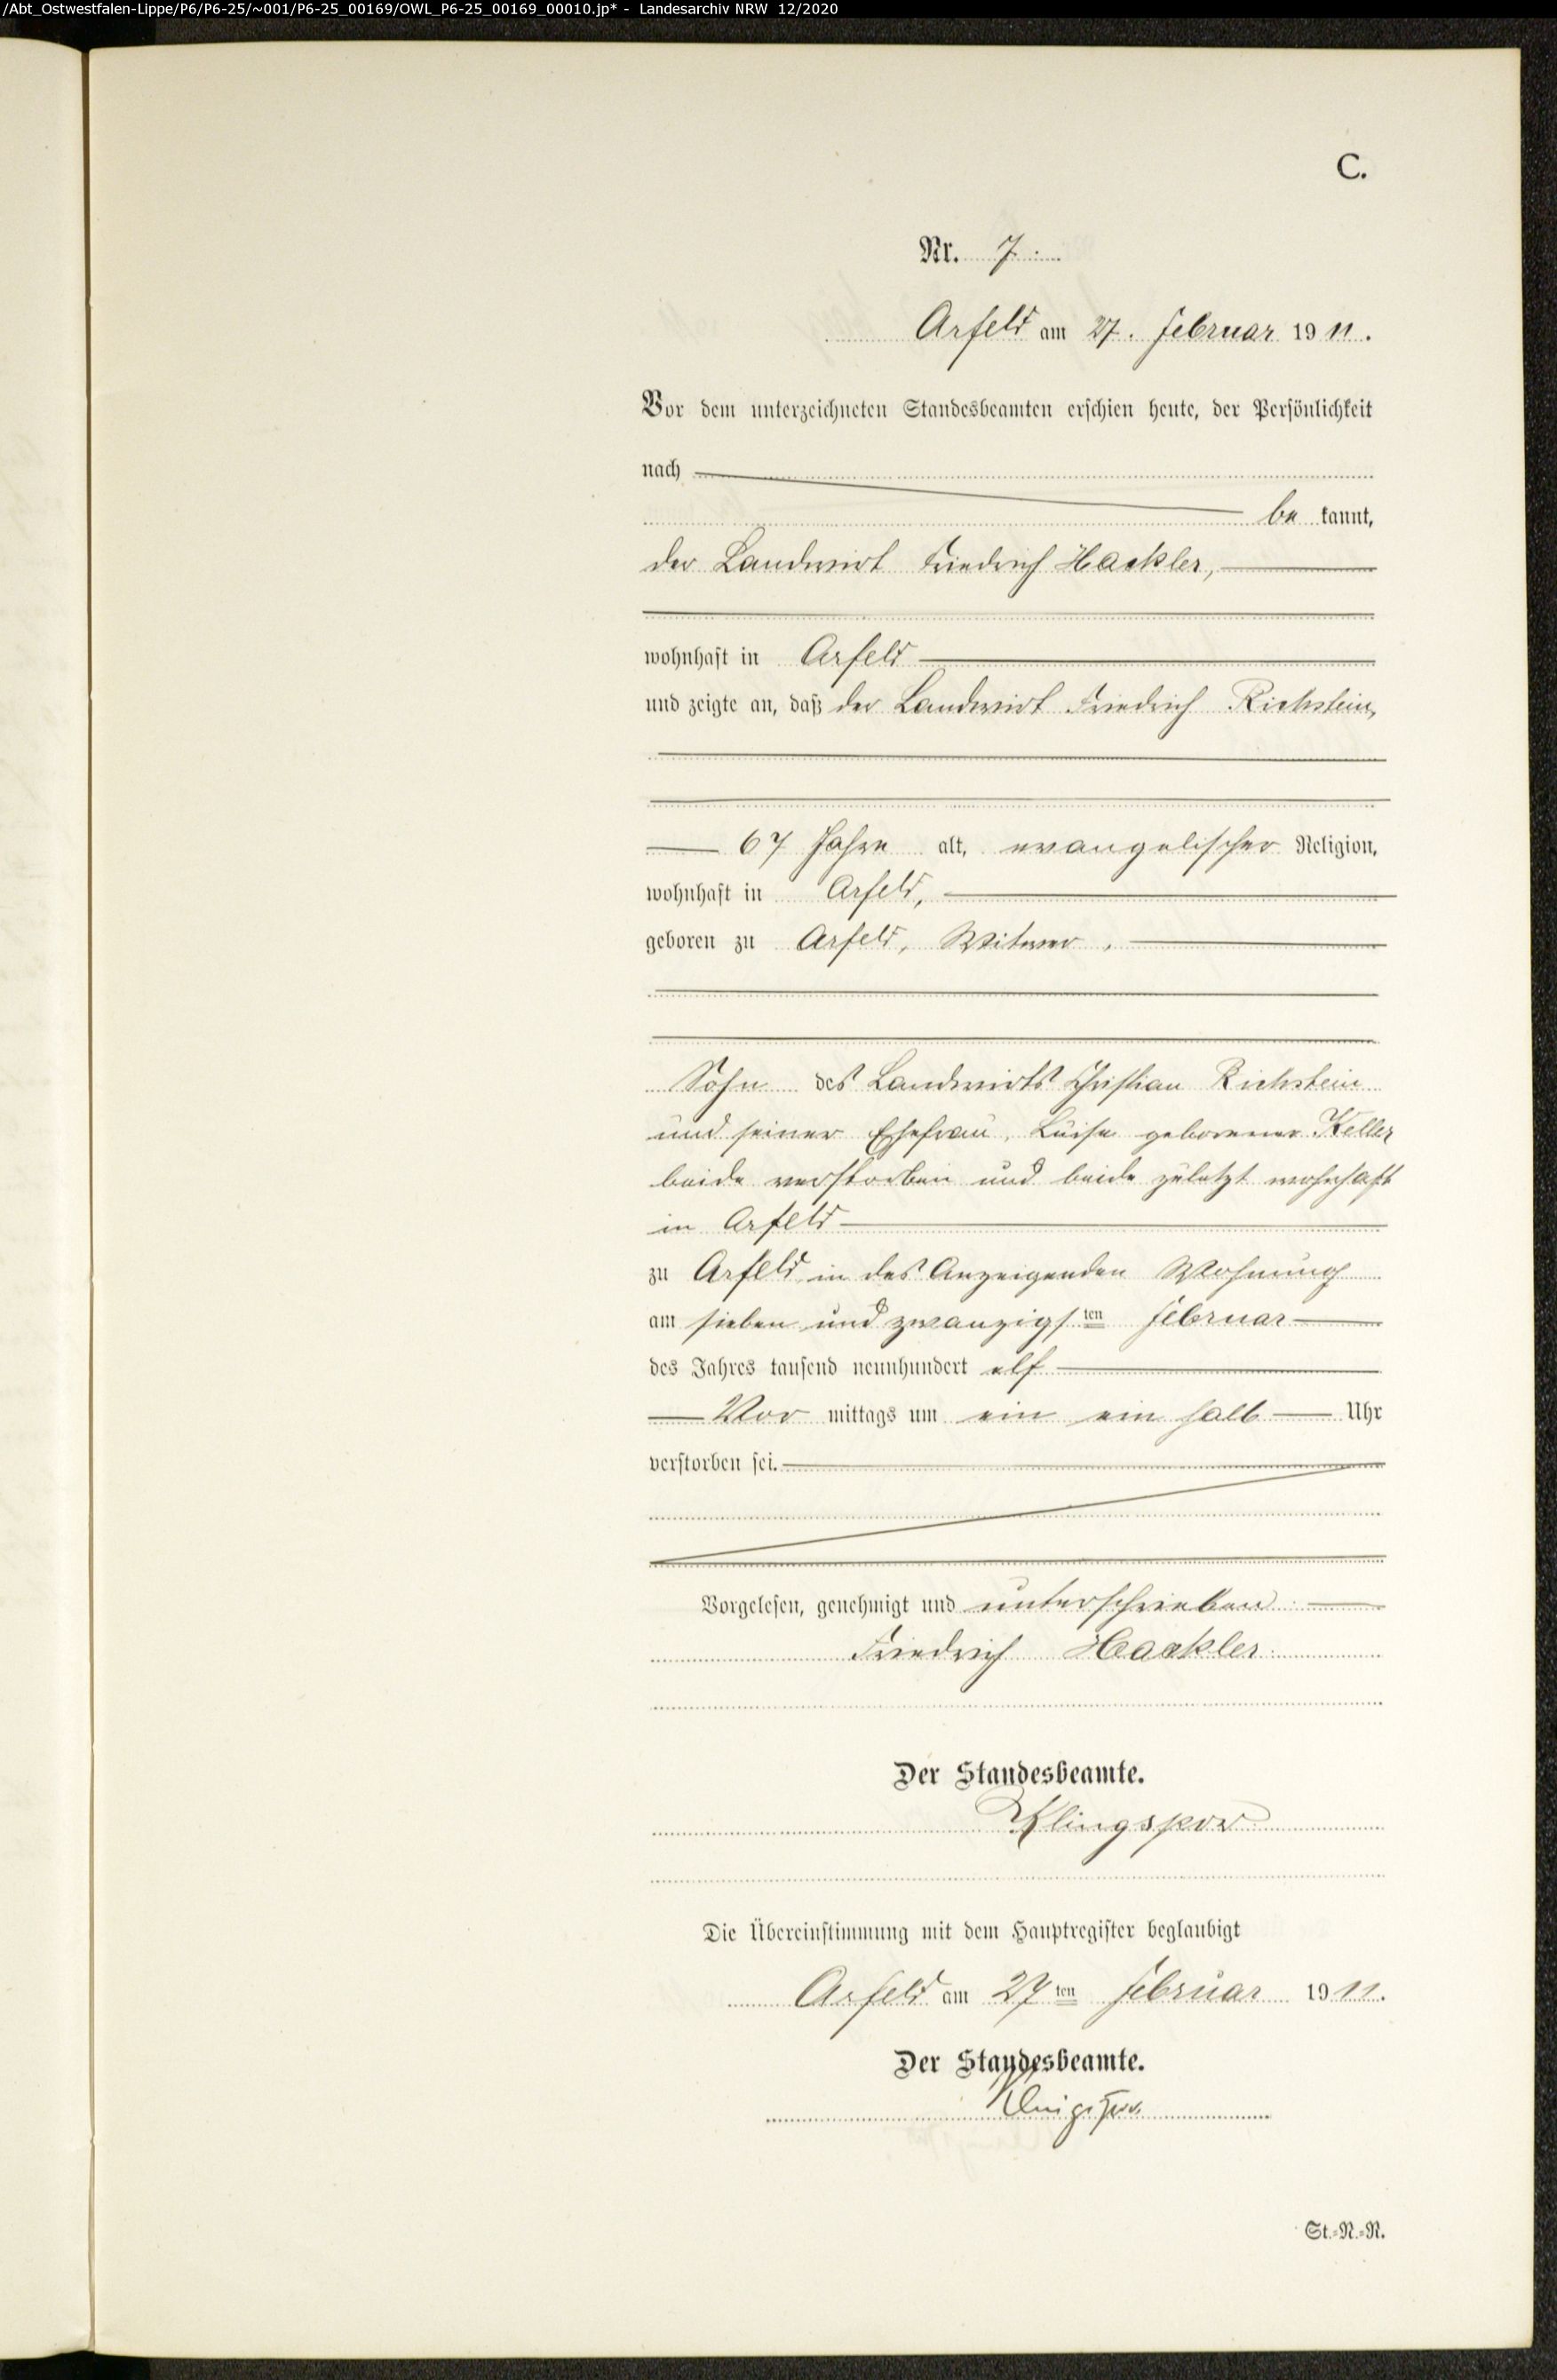 /Abt_Ostwestfalen-Lippe/P6/P6-25/~001/P6-25_00169/OWL_P6-25_00169_00010.jp* - Landesarchiv NRW 12/2020
C.
Nr. 7.
Arfeld am 27. Februar 1911.
Vor dem unterzeichneten Standesbeamten erschien heute, der Persönlichkeit
nach
be kannt,
der Landwirt Friedrich Hackler,
wohnhaft in Arfeld
und zeigte an, daß der Landwirt Friedrich Richstein,
67 Jahre alt, evangelischer Religion,
wohnhaft in Arfeld,
geboren zu Arfeld, Witwer,
Sohn des Landwirts Christian Richstein
und seiner Ehefrau, Luise geborener Keller
beide verstorben und beide zuletzt wohnhaft
in Arfeld
zu Arfeld in des Anzeigenden Wohnung
am sieben und zwanzigsten Februar
des Jahres tausend neunhundert elf
Vor mittags um ein ein halb Uhr
verstorben sei.
Vorgelesen, genehmigt und unterschrieben
Friedrich Hackler.
Der Standesbeamte.
Klingspor
Die Übereinstimmung mit dem Hauptregister beglaubigt
Arfeld am 27ten Februar 1911.
Der Standesbeamte.
Klingspor.
St.-N.-N.